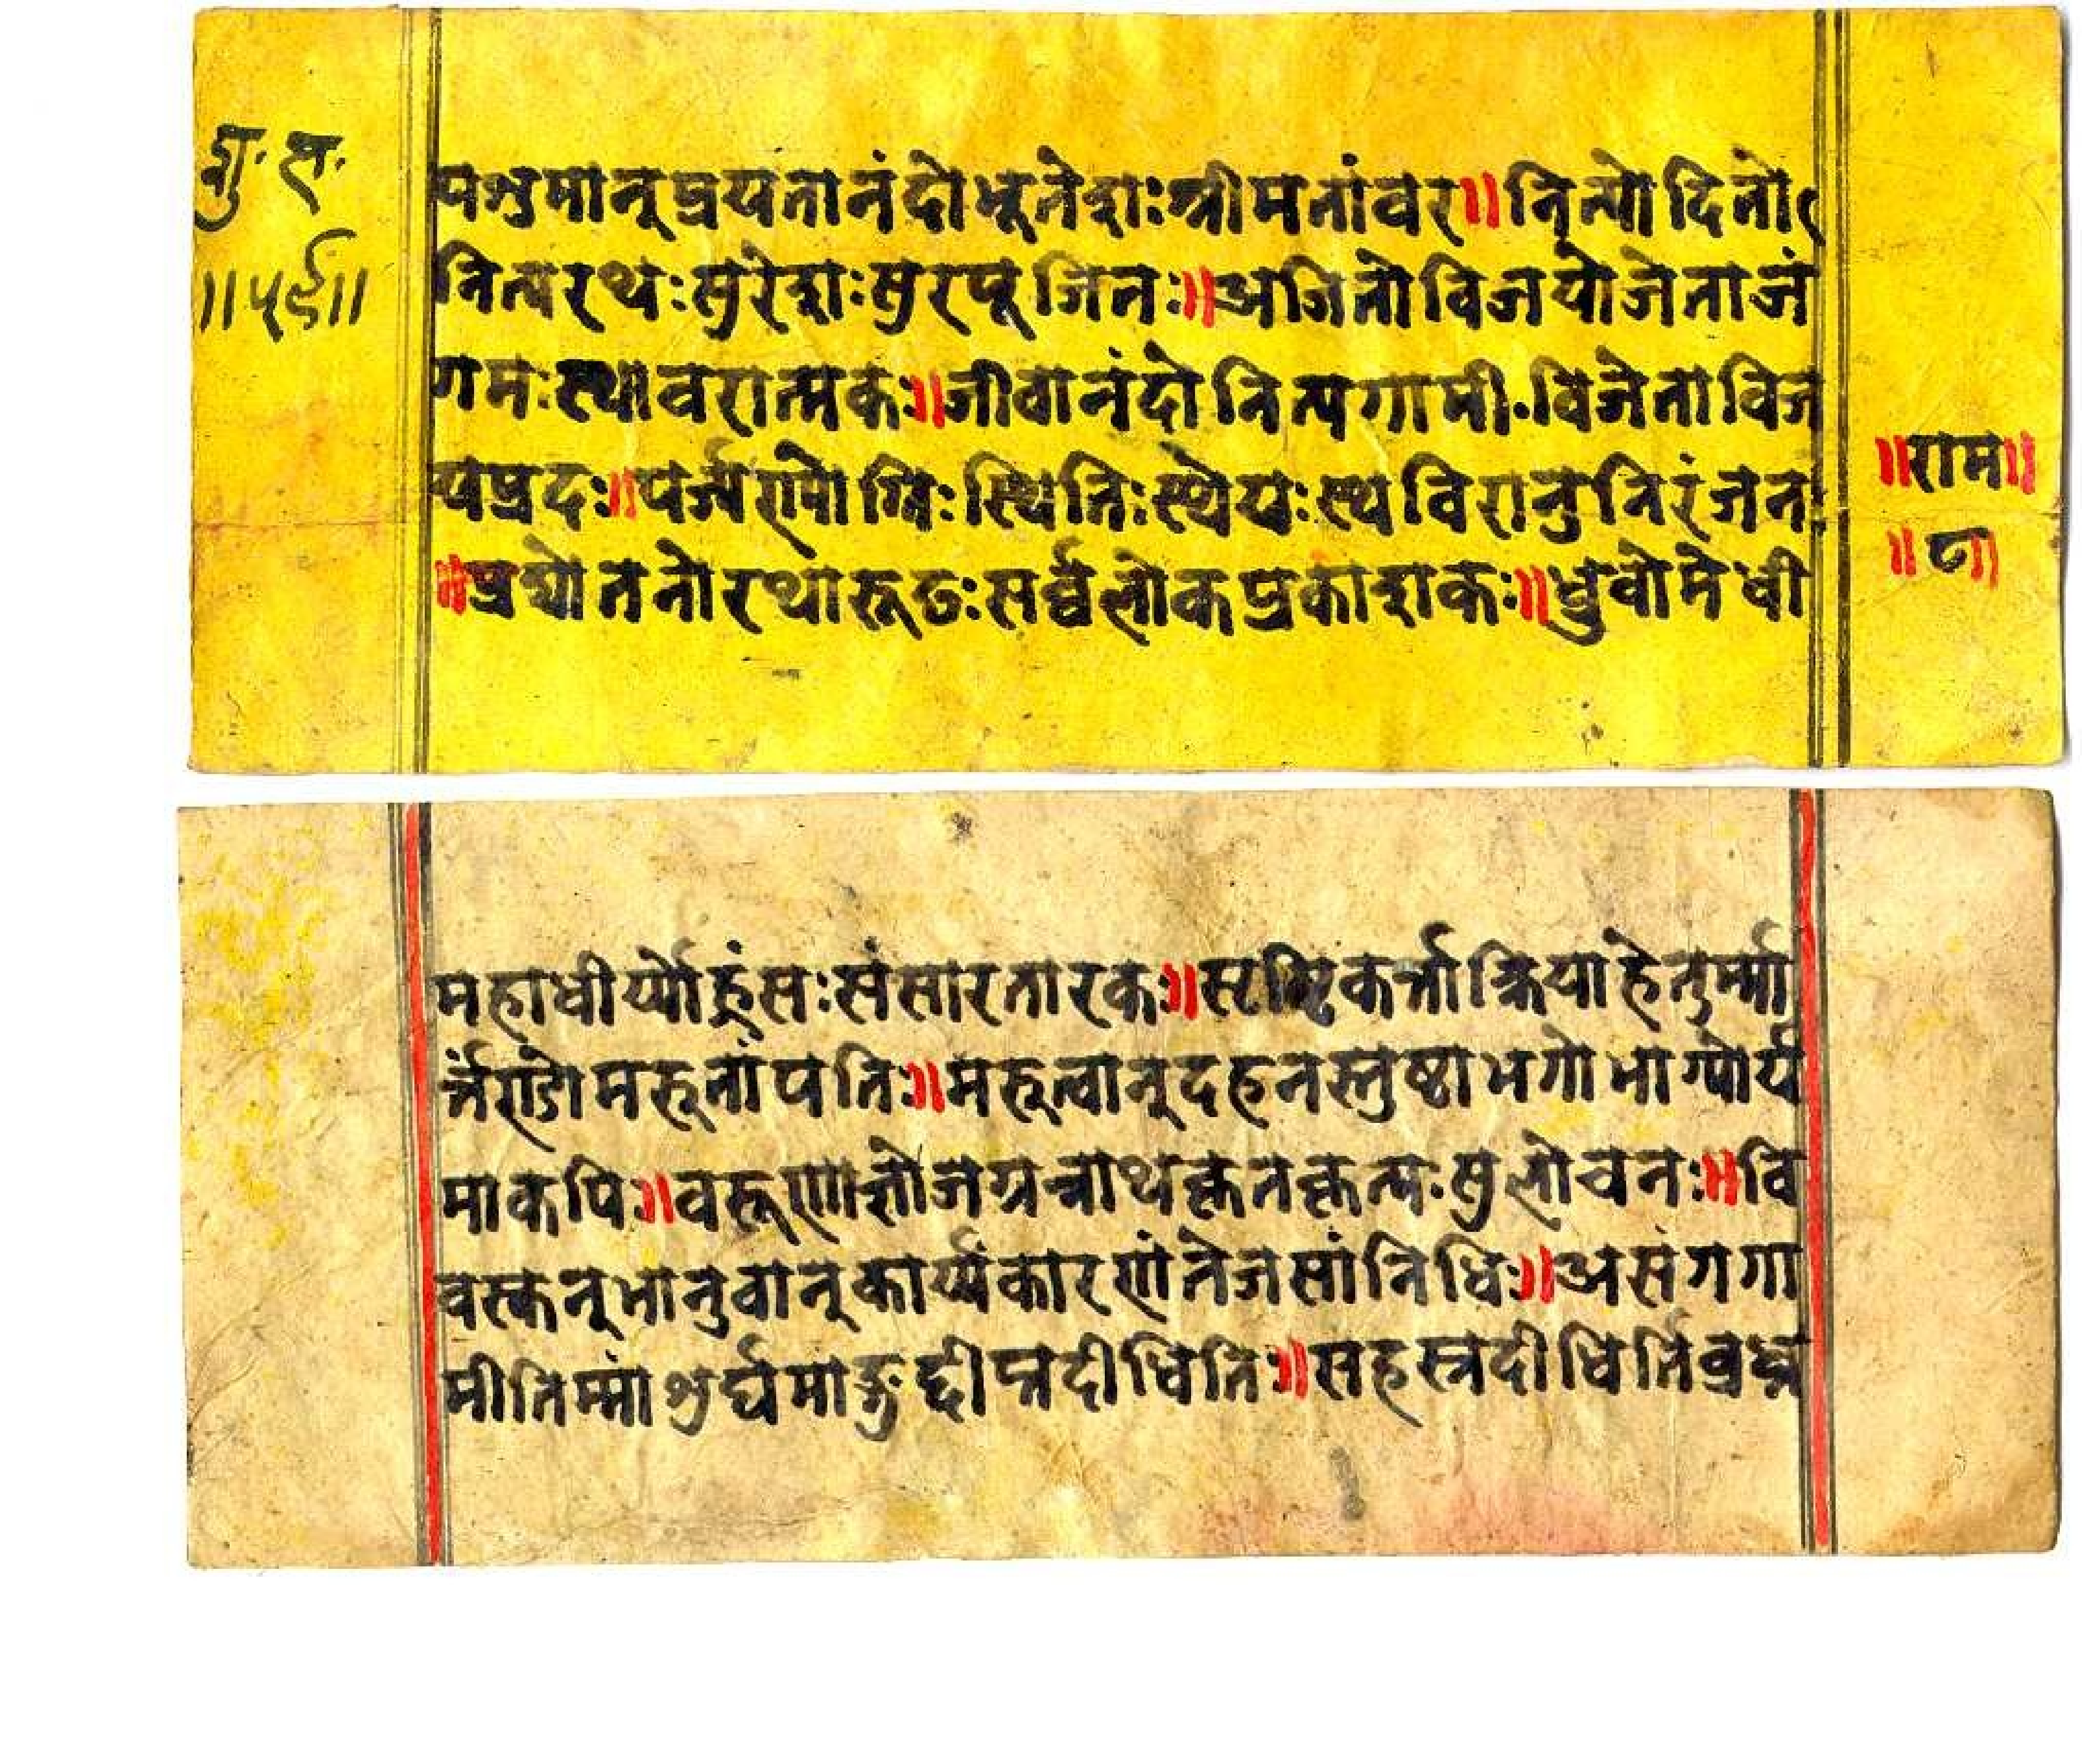 गु. ह.
॥५९॥
पशुमान्प्रयतानंदोभूतेशःश्रीमतांवर॥नित्योदितो
नित्यरथःसुरेशःसुरपूजितः॥अजितोविजयोजेताजं
गमःस्थावरात्मकः॥जीवानंदोनित्यगामी.विजेताविज
यप्रदः॥स्थितिःस्थेयःस्थविरानुनिरंजनः
॥प्रद्योतनोरथारूढःसर्व्वलोकप्रकाशकः॥ध्रुवोमेषी
॥राम॥
॥८॥
महावीर्य्योहंसःसंसारतारकः॥सृष्टिकर्त्ताक्रियाहेतुर्म्मा
र्त्तंण्डोमरूतांपतिः॥मरूत्वान्दहनस्तुष्टाभगोभाग्योर्य
माकपि॥जगन्नाथकृतकृत्यःसुलोचनः॥वि
वस्कन्भानुवान्कार्य्यकारणंतेजसांनिधिः॥असंगगा
मीतिम्मांशुर्घमाद्दीप्तदीधिति॥सहस्त्रदीधितिर्व्रध्न